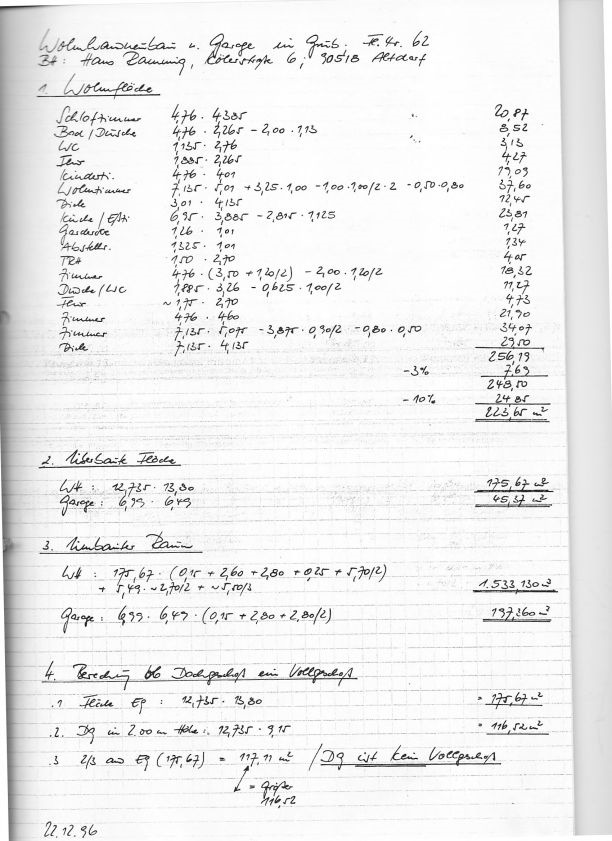 Wohnhausneubau u. Garage in Grub. Fl. Nr. 62
BH: Hans Rammig, 6, 90518 Altdorf
1. Wohnfläche
Schlafzimmer 4,76 · 4,385 20,87
Bad / Dusche 4,76 · 2,265 - 2,00 · 1,13 8,52
WC 1,135 · 2,76 3,13
Flur 1,885 · 2,265 4,27
Kinderzi. 4,76 · 4,01 19,09
Wohnzimmer 7,135 · 5,01 + 3,25 · 1,00 - 1,00 · 1,00/2 · 2 - 0,50 · 0,80 37,60
Diele 3,01 · 4,135 12,45
Küche / Eßzi 6,95 · 3,885 - 2,815 · 1,125 23,81
Garderobe 1,26 · 1,01 1,27
Abstellr. 1,325 · 1,01 1,34
TRH 1,50 · 2,70 4,05
Zimmer 4,76 · (3,50 + 1,20/2) - 2,00 · 1,20/2 18,32
Dusche / WC 1,885 · 3,26 - 0,625 · 1,00/2 11,27
Flur ~ 1,75 · 2,70 4,73
Zimmer 4,76 · 4,60 21,90
Zimmer 7,135 · 5,075 - 3,875 · 0,90/2 - 0,80 · 0,50 34,07
Diele 7,135 · 4,135 29,50
256,19
- 3% 7,69
248,50
- 10% 24,85
223,65 m²
2. Überbaute Fläche
WH: 12,735 · 13,80 175,67 m²
Garage: 6,99 · 6,49 45,37 m²
3. Umbauter Raum
WH: 175,67 · (0,15 + 2,60 + 2,80 + 0,25 + 5,70/2)
+ 5,49 · ~ 2,70/2 + ~ 5,50/3 1.533,130 m³
Garage: 6,99 · 6,49 · (0,15 + 2,80 + 2,80/2) 197,360 m³
4. Berechnung ob Dachgeschoß ein Vollgeschoß
.1 Fläche EG: 12,735 · 13,80 = 175,67 m²
.2. DG in 2.00 m Höhe: 12,735 · 9,15 = 116,52 m²
.3 2/3 aus EG (175,67) = 117,11 m² / DG ist kein Vollgeschoß
= größer
116,52
22.12.96